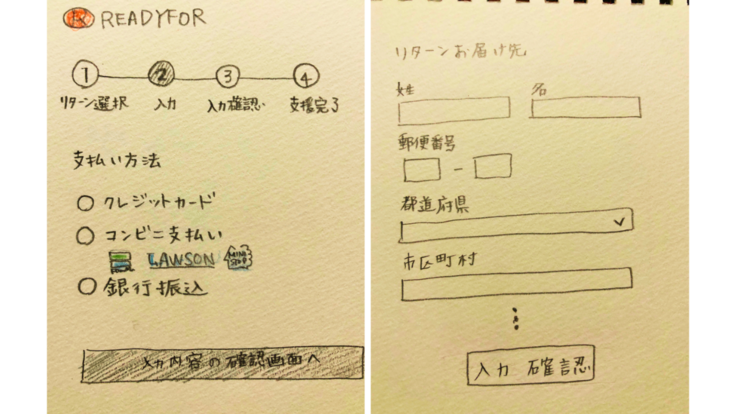 READYFOR
1 2 3 4
リターン選択 入力 入力確認 支援完了
支払い方法
クレジットカード
コンビニ支払い
LAWSON MINI STOP
銀行振込
入力内容の確認画面へ
リターンお届け先
姓 名
郵便番号
-
都道府県
市区町村
入力 確認